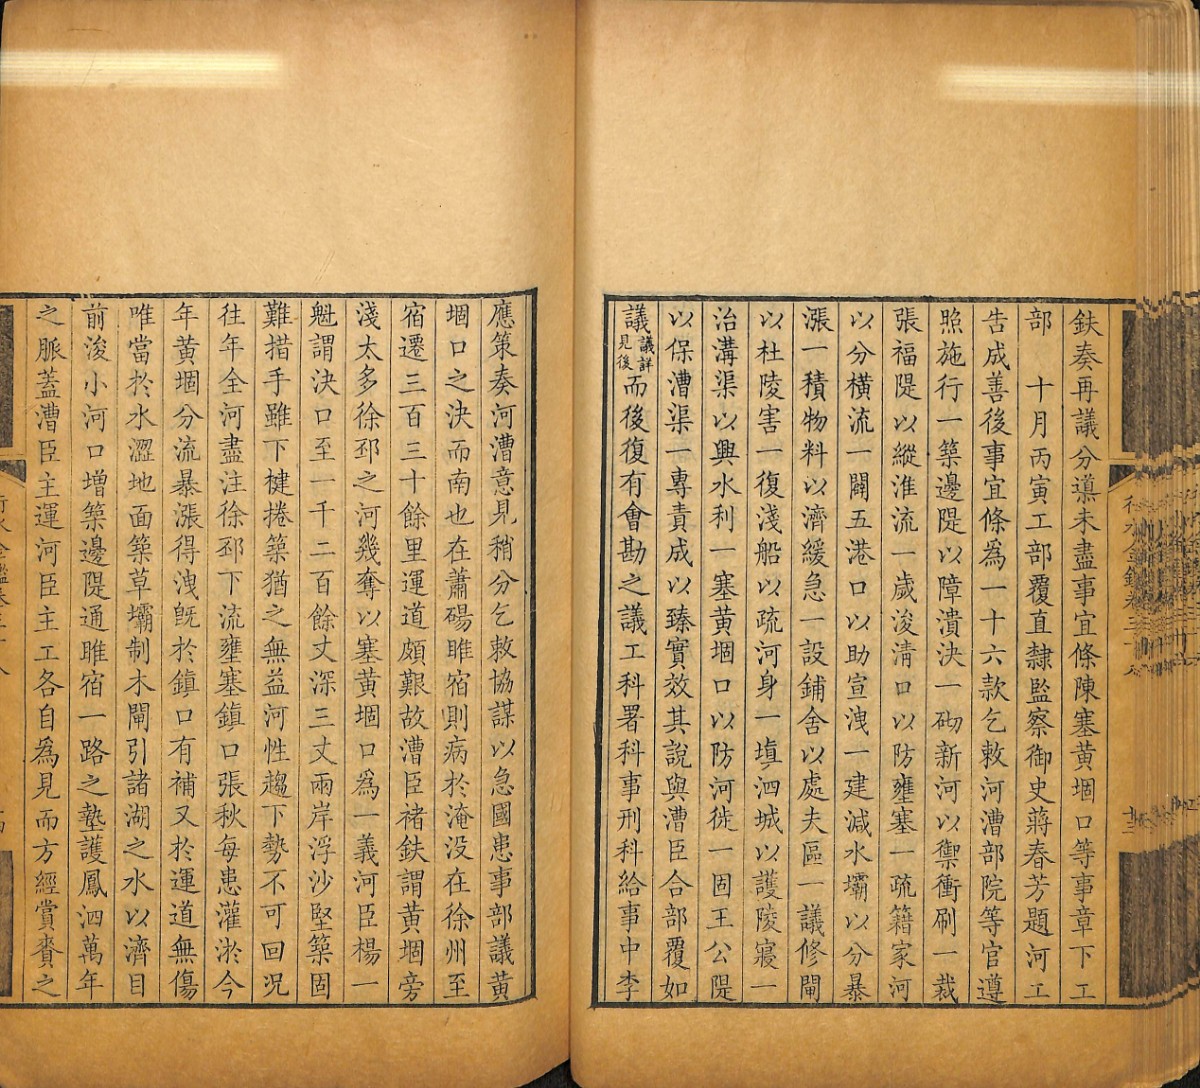 鈇奏再議分導未盡事宜條陳塞黃堌口等事章下工
部　十月丙寅工部覆直隸監察御史蔣春芳題河工
告成善後事宜條為一十六款乞敕河漕部院等官遵
照施行一築邊隄以障潰決一砌新河以禦衝刷一裁
張福隄以縱淮流一歲浚清口以防壅塞一疏籍家河
以分橫流一闢五港口以助宣洩一建減水壩以分暴
漲一積物料以濟緩急一設鋪舍以處夫區一議修閘
以杜陵害一復淺船以疏河身一塡泗城以護陵寢一
治溝渠以興水利一塞黃堌口以防河徙一固王公隄
以保漕渠一專責成以臻實效其說與漕臣合部覆如
議議詳見後而後復有會勘之議工科署科事刑科給事中李
應策奏河漕意見稍分乞敕協謀以急國患事部議黃
堌口之決而南也在蕭碭睢宿則病於淹没在徐州至
宿遷三百三十餘里運道頗艱故漕臣褚鈇謂黃堌旁
淺太多徐邳之河幾奪以塞黃堌口為一義河臣楊一
魁謂決口至一千二百餘丈深三丈兩岸浮沙堅築固
難措手雖下楗捲築猶之無益河性趨下勢不可回況
往年全河盡注徐邳下流壅塞鎮口張秋每患灌淤今
年黃堌分流暴漲得洩旣於鎮口有補又於運道無傷
唯當於水澀地面築草壩制木閘引諸湖之水以濟目
前浚小河口增築邊隄通睢宿一路之墊護鳳泗萬年
之脈蓋漕臣主運河臣主工各自為見而方經賞賚之